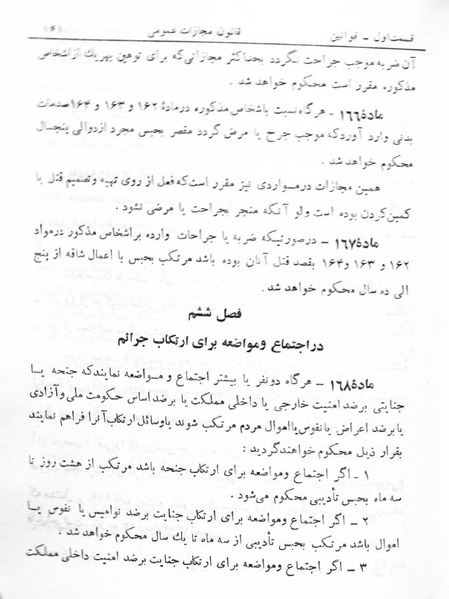 قسمت اول ـ قوانین قانون مجازات عمومی
آن ضربه موجب جراحت نگردد بحداکثر مجازاتی که برای توهین بهریك از اشخاص
مذکوره مقرر است محکوم خواهد شد .
مادهٔ ۱۶۶ - هرگاه نسبت باشخاص مذکوره در مادهٔ ۱۶۲ و ۱۶۳ و ۱۶۴ صدمات
بدنی وارد آورد که موجب جرح یا مرض گردد مقصر بحبس مجرد از دو الی پنجسال
محکوم خواهد شد .
همین مجازات در مواردی نیز مقرر است که فعل از روی تهیه و تصمیم قتل یا
کمین کردن بوده است ولو آنکه منجر بجراحت یا مرضی نشود .
مادهٔ ۱۶۷ - درصورتیکه ضربه یا جراحات وارده بر اشخاص مذکور در مواد
۱۶۲ و ۱۶۳ و ۱۶۴ بقصد قتل آنان بوده باشد مرتکب بحبس با اعمال شاقه از پنج
الی ده سال محکوم خواهد شد .
فصل ششم
در اجتماع و مواضعه برای ارتکاب جرائم
مادهٔ ۱۶۸ - هرگاه دو نفر یا بیشتر اجتماع و مواضعه نمایند که جنحه یا
جنایتی برضد امنیت خارجی یا داخلی مملکت یا برضد اساس حکومت ملی و آزادی
یا برضد اعراض یا نفوس یا اموال مردم مرتکب شوند یا وسائل ارتکاب آنرا فراهم نمایند
بقرار ذیل محکوم خواهند گردید :
۱ - اگر اجتماع و مواضعه برای ارتکاب جنحه باشد مرتکب از هشت روز تا
سه ماه بحبس تأدیبی محکوم می‌شود .
۲ - اگر اجتماع و مواضعه برای ارتکاب جنایت برضد نوامیس یا نفوس یا
اموال باشد مرتکب بحبس تأدیبی از سه ماه تا یك سال محکوم خواهد شد .
۳ - اگر اجتماع و مواضعه برای ارتکاب جنایت برضد امنیت داخلی مملکت